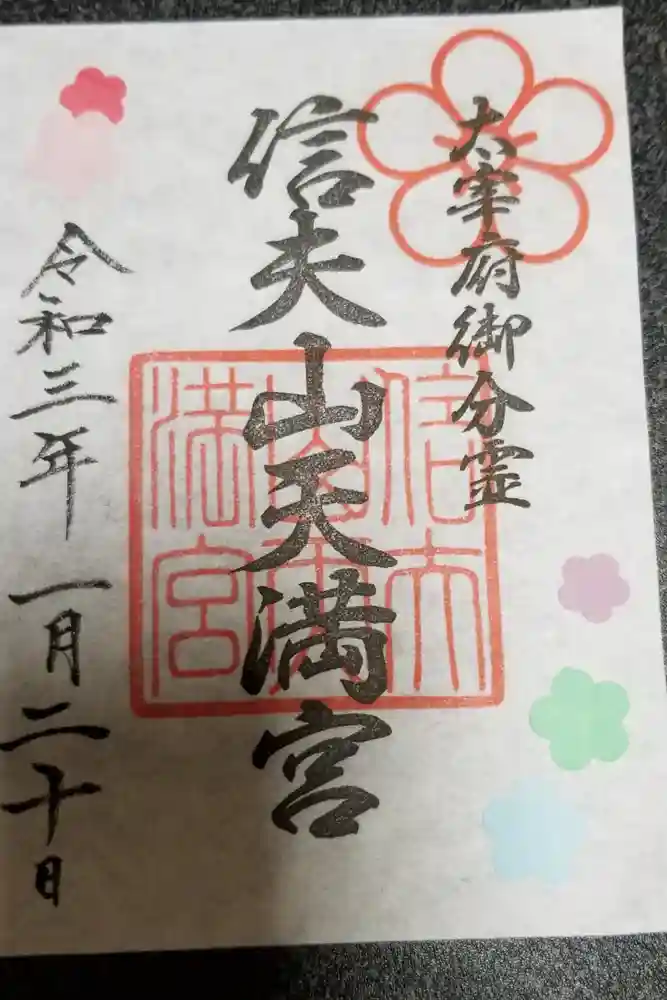 太宰府御分霊
信夫山天満宮
信夫山天満宮
令和三年一月二十日